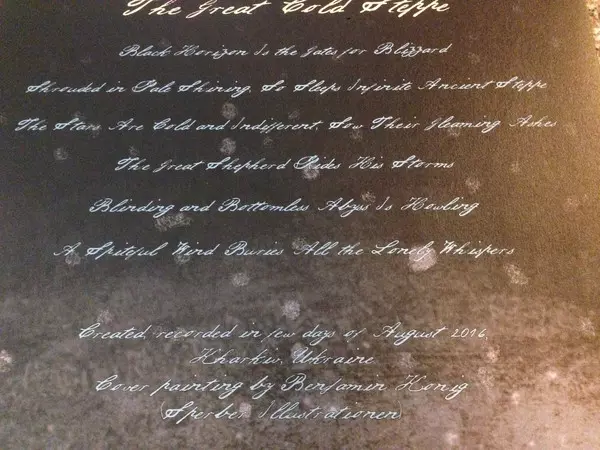 The Great Cold Steppe
Black Horizon Is the Gates for Blizzard
Shrouded in Pale Shining, So Sleeps Infinite Ancient Steppe
The Stars Are Cold and Indifferent, Sow Their Gleaming Ashes
The Great Shepherd Rides His Storms
Blinding and Bottomless Abyss Is Howling
A Spiteful Wind Buries All the Lonely Whispers
Created, recorded in few days of August 2016,
Kharkiv, Ukraine
Cover painting by Benjamin Konig
(Sperber Illustrationen)